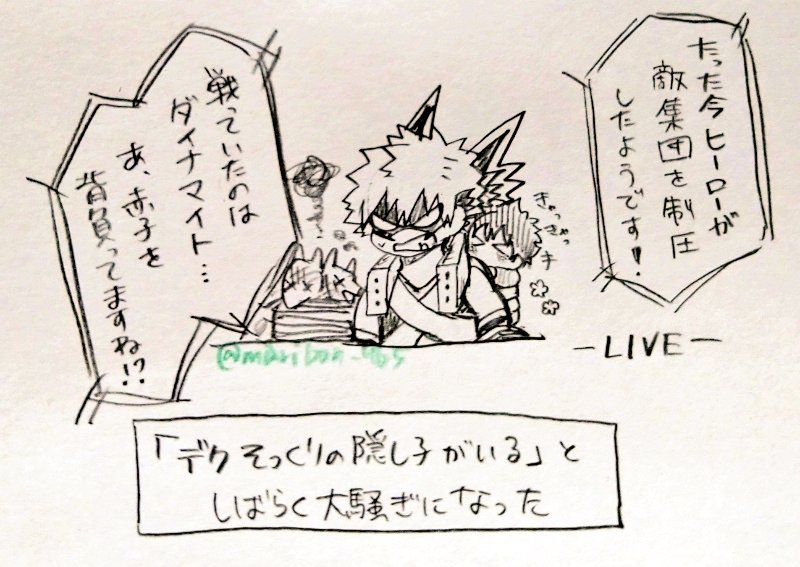 たった今ヒーローが
敵集団を制圧
したようです!
戦っていたのは
ダイナマイト…
あ、赤子を
背負ってますね!?
きゃっ
きゃっ
キ
-LIVE-
「デクそっくりの隠し子がいる」と
しばらく大騒ぎになった